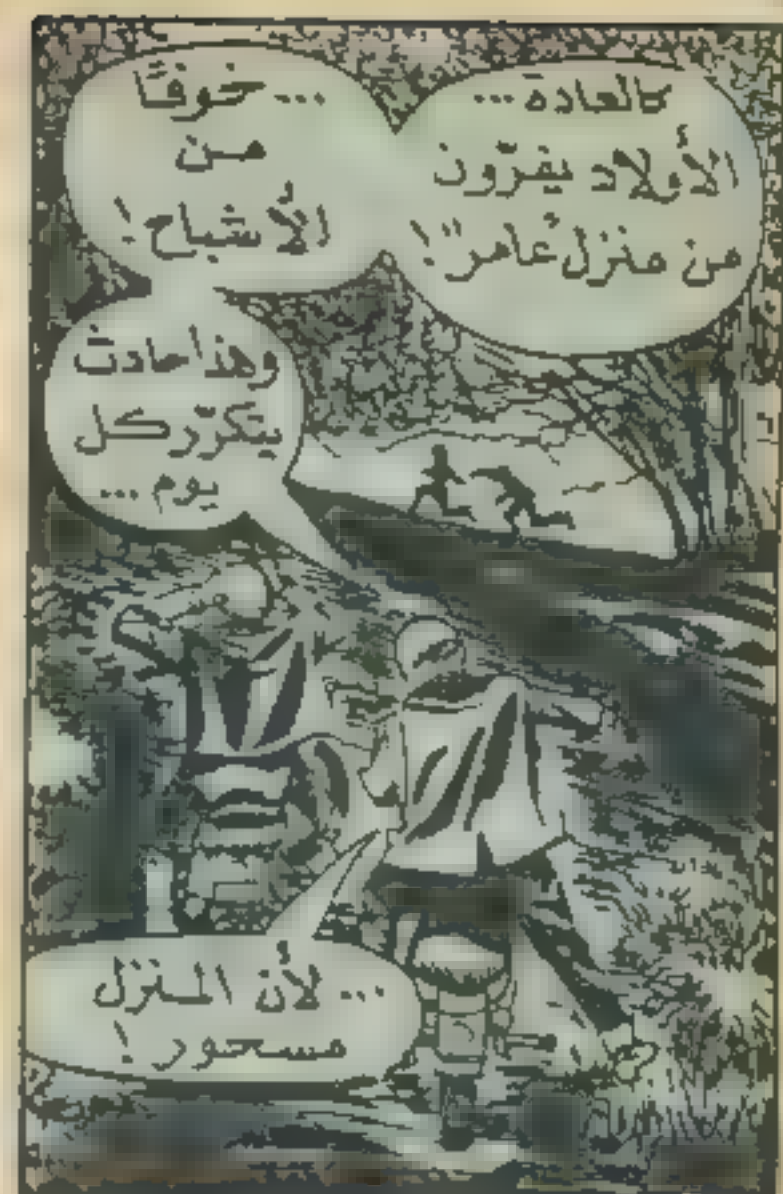 كالعادة ...
الأولاد يفرّون
من منزل "عامر"!
... خوفًا
من
الأشباح!
وهذا حادث
يتكرّر كل
يوم ...
... لأن المنزل
مسحور!